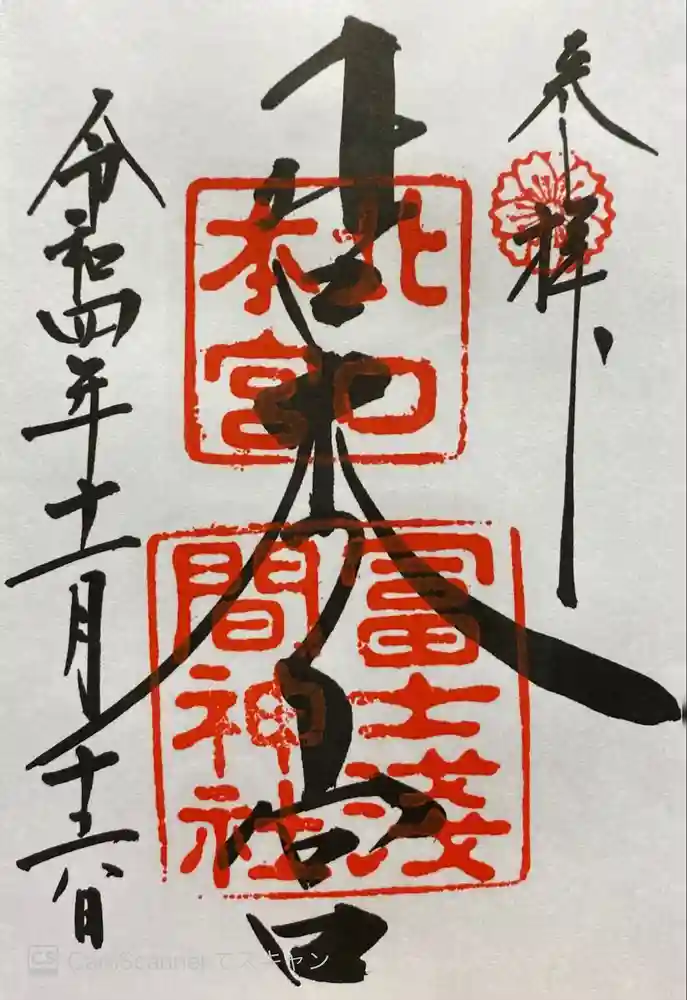 奉拝
北口本宮
北口
本宮
冨士淺
間神社
令和四年十一月
CS CamScanner でスキャン